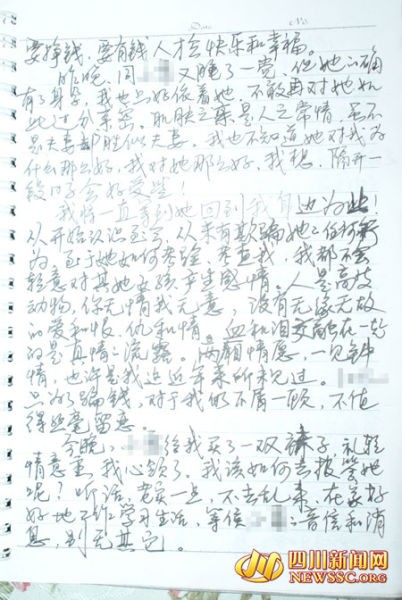 Date No.
要挣钱，要有钱人才快乐和幸福。
昨晚，同 又睡了一觉，但她的确
有了身孕，我也只好依着她，不敢再对她如
此过分亲密。肌肤之亲是人之常情，虽不
是夫妻却胜似夫妻，我也不知道她对我为
什么那么好，我对她那么好，我想，隔开一
段时间会好些！
我将一直等到她回到我身边为止！
从开始认识至今，从未有欺骗她之任何行
为，至于她如何考验、考查我，我都不会
轻意对其她女孩产生感情。人是高级
动物，你无情我无意，没有无缘无故
的爱和恨、仇和情。血和泪交融在一起
的是真情之流露。两厢情愿，一见钟
情，也许是我这近年来所未见过。
只为了骗钱，对于我的不屑一顾，不值
得丝毫留恋。
今晚， 给我买了一双袜子，礼轻
情意重，我心领了，我该如何去报答她
呢？听话，老实一点，不去乱来，在家好
好地工作、学习生活，等候 之音信和消
息，别无其它。
四川新闻网
NEWSSC.ORG